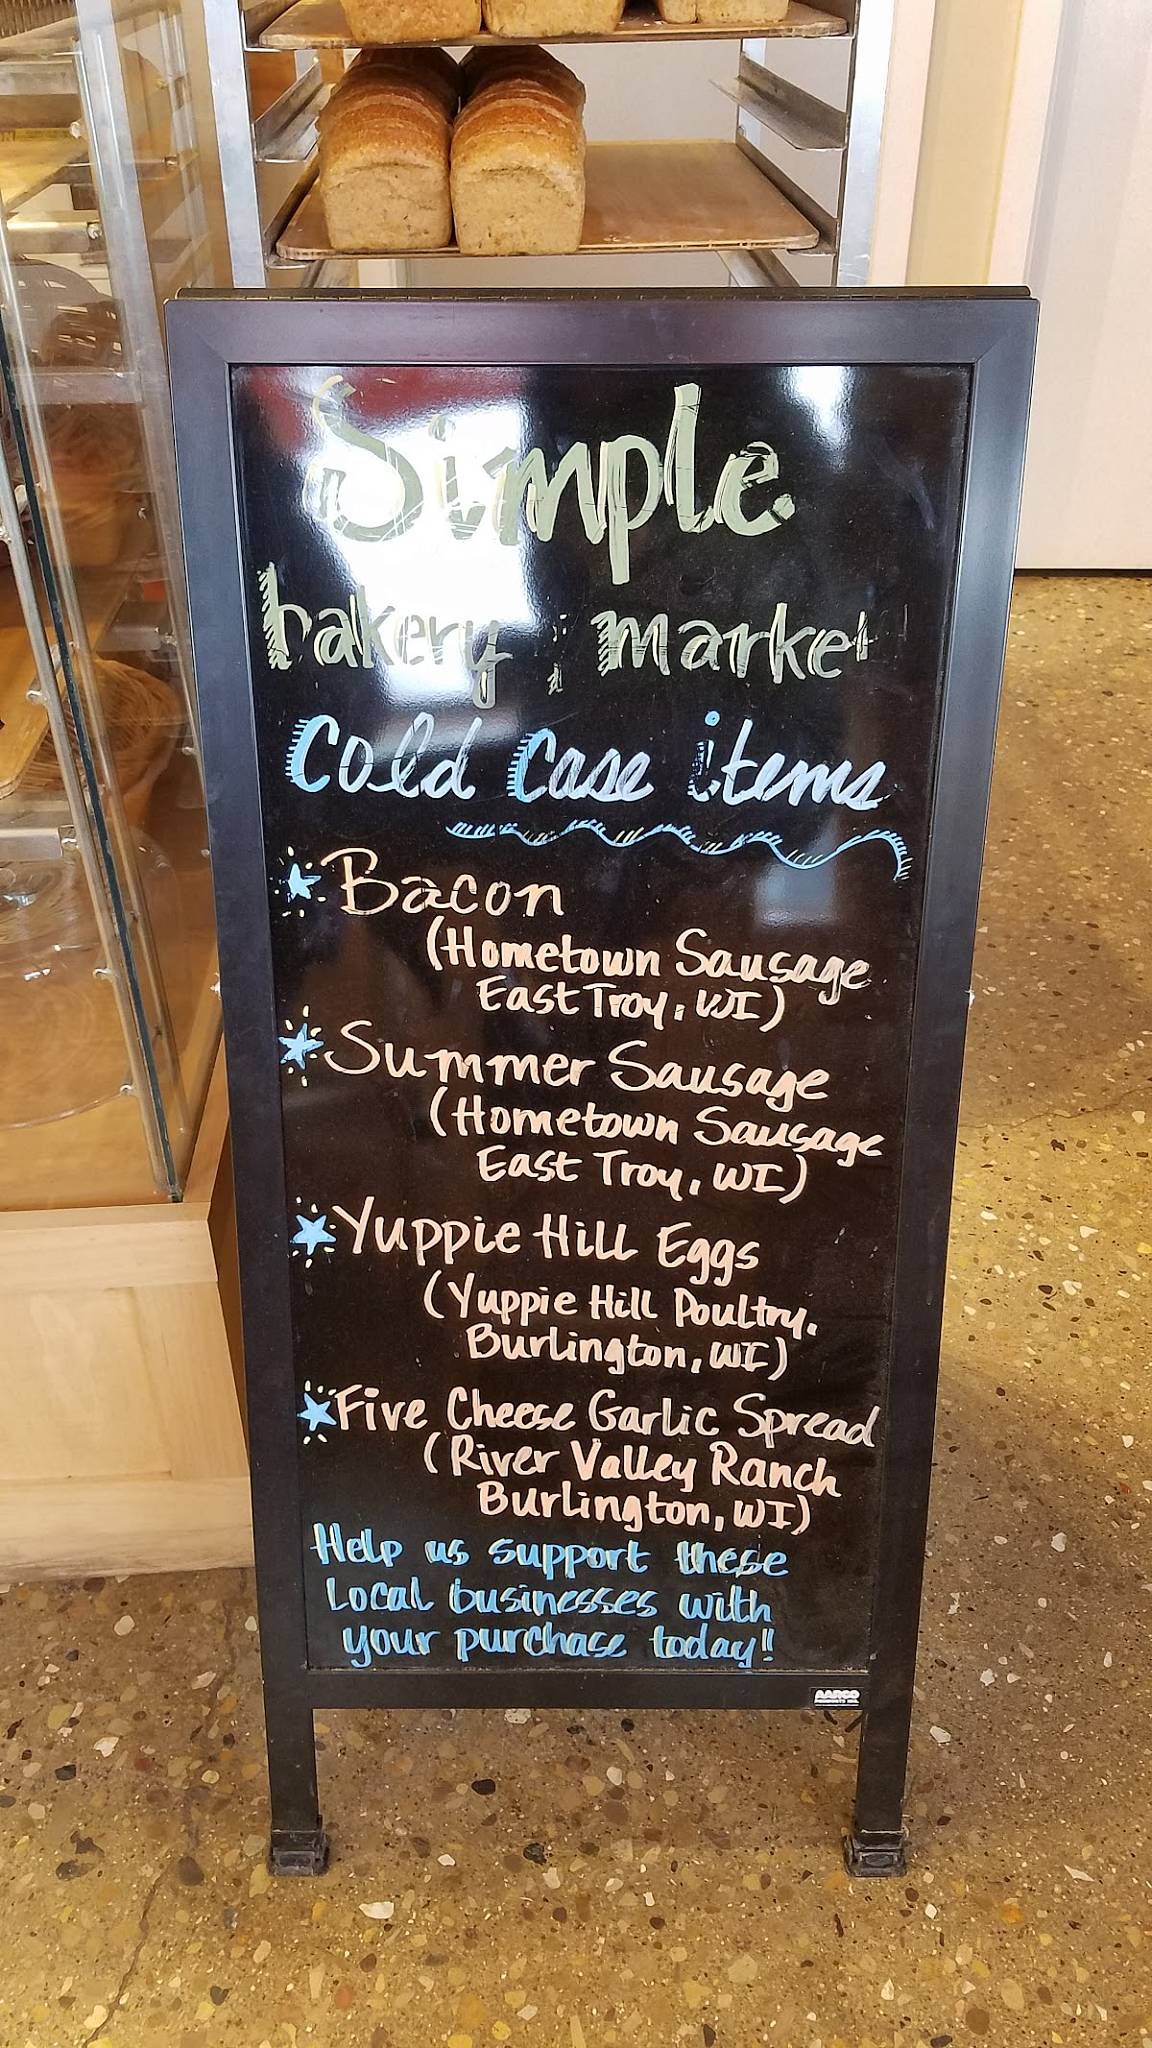 Simple.
bakery ; market
Cold Case items
Bacon
(Hometown Sausage
East Troy, WI)
Summer Sausage
(Hometown Sausage
East Troy, WI)
Yuppie Hill Eggs
(Yuppie Hill Poultry,
Burlington, WI)
Five Cheese Garlic Spread
(River Valley Ranch
Burlington, WI)
Help us support these
Local businesses with
your purchase today!!
AARCO